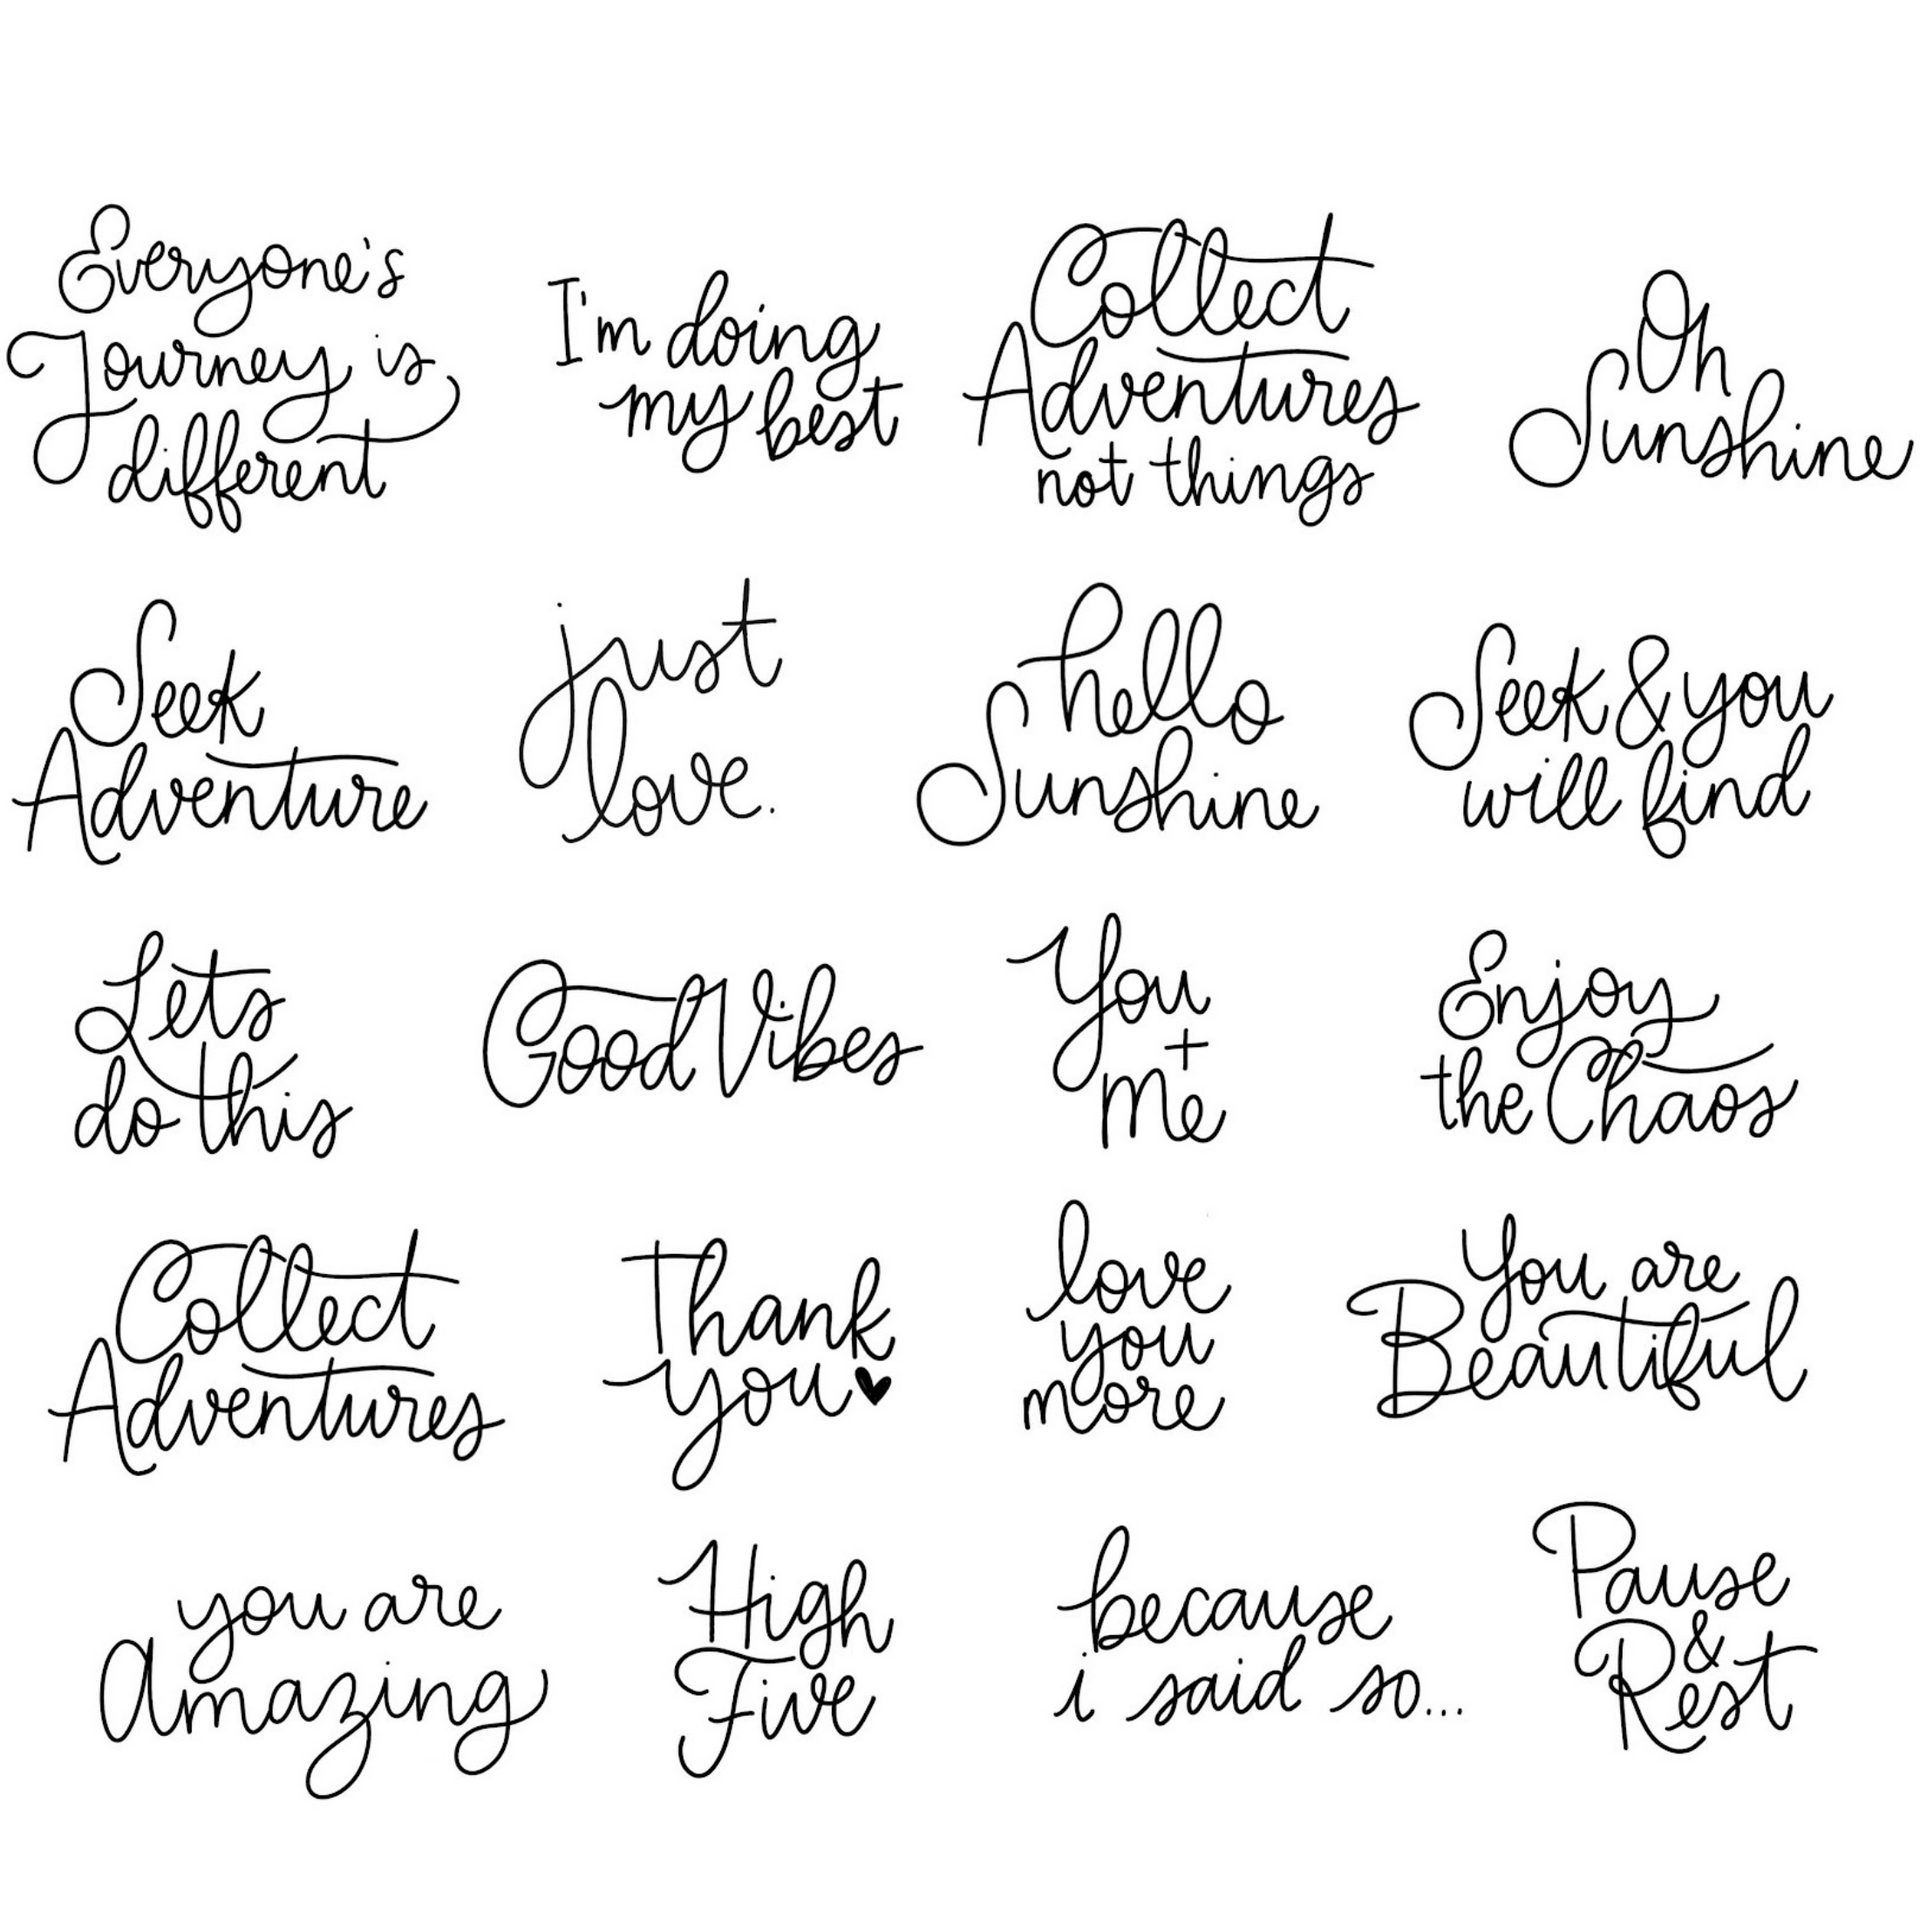 Everyone's
Journey is
different
I'm doing
my best
Collect
Adventures
not things
Oh
Sunshine
Seek
Adventure
just
love.
hello
Sunshine
Seek & you
will find
Lets
do this
Good Vibes
You
+
Me
Enjoy
the Chaos
Collect
Adventures
Thank
you
love
you
more
You are
Beautiful
you are
Amazing
High
Five
because
i said so...
Pause
&
Rest